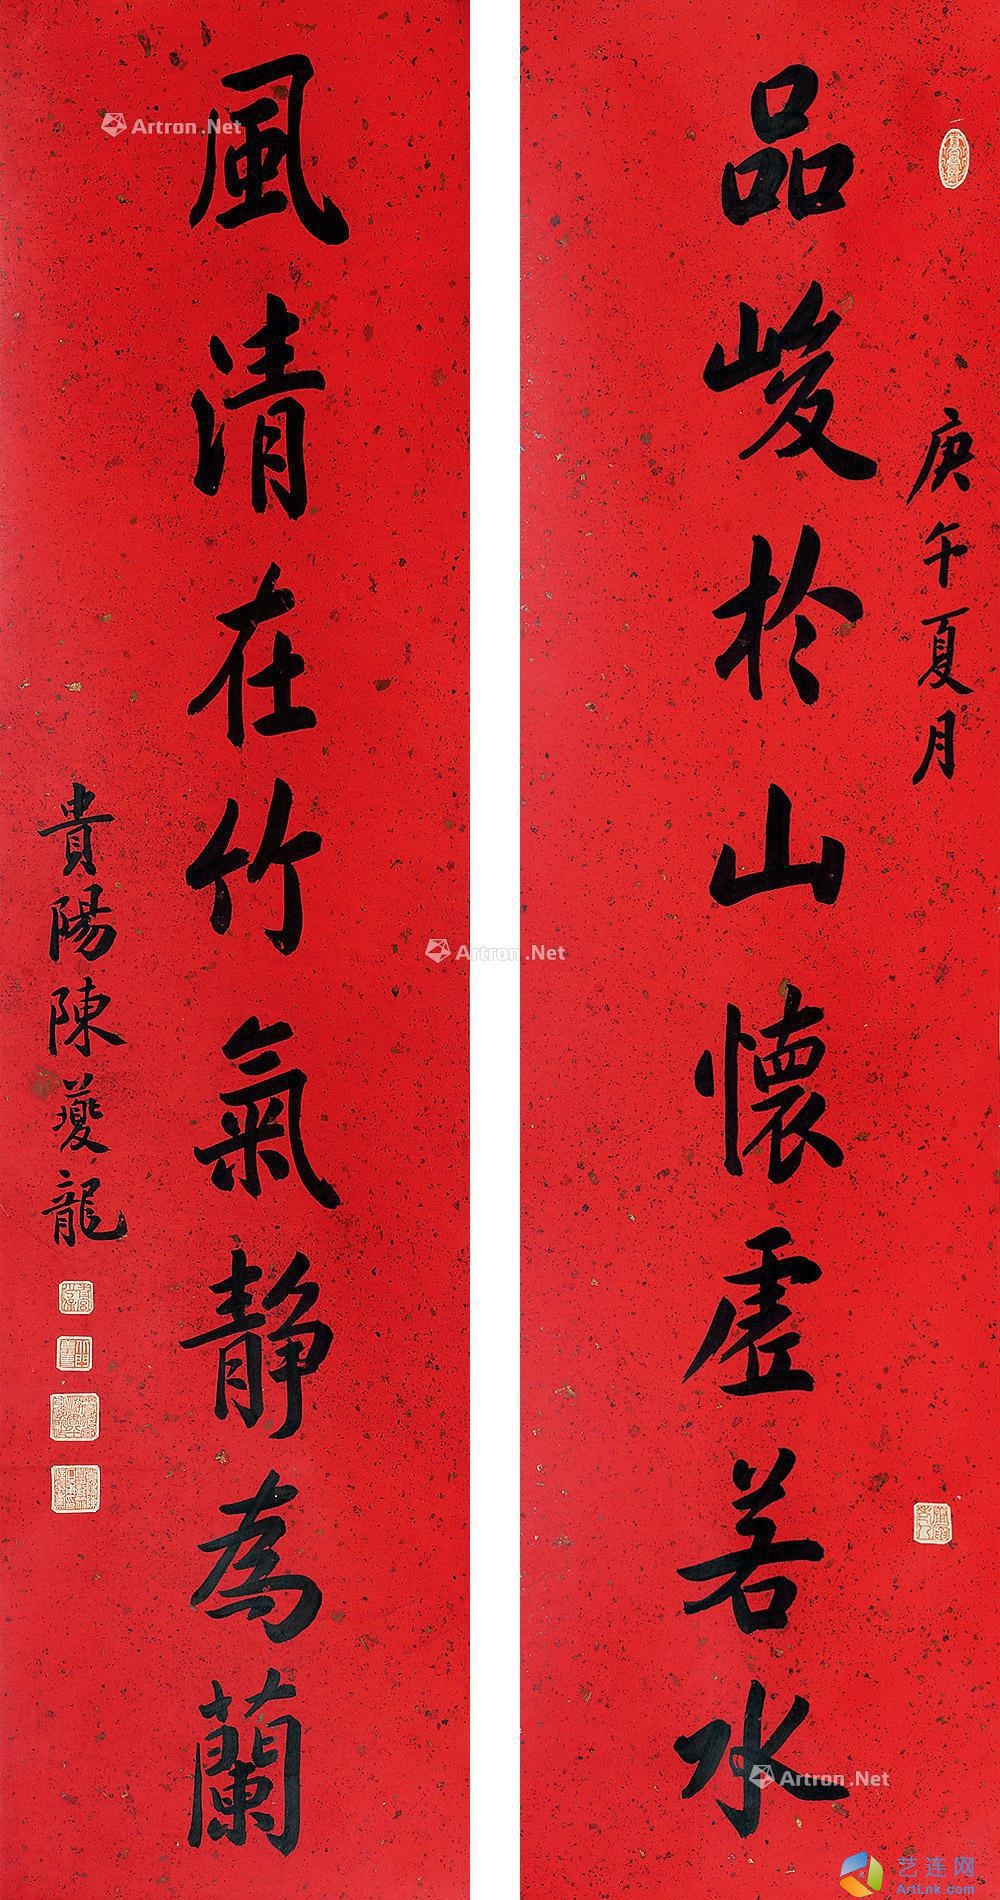 庚午夏月
品峻於山懷虛若水
風清在竹氣靜為蘭
貴陽陳夔龍
Artron.Net
Artron.Net
Artron.Net
艺连网
ArtLnk.com